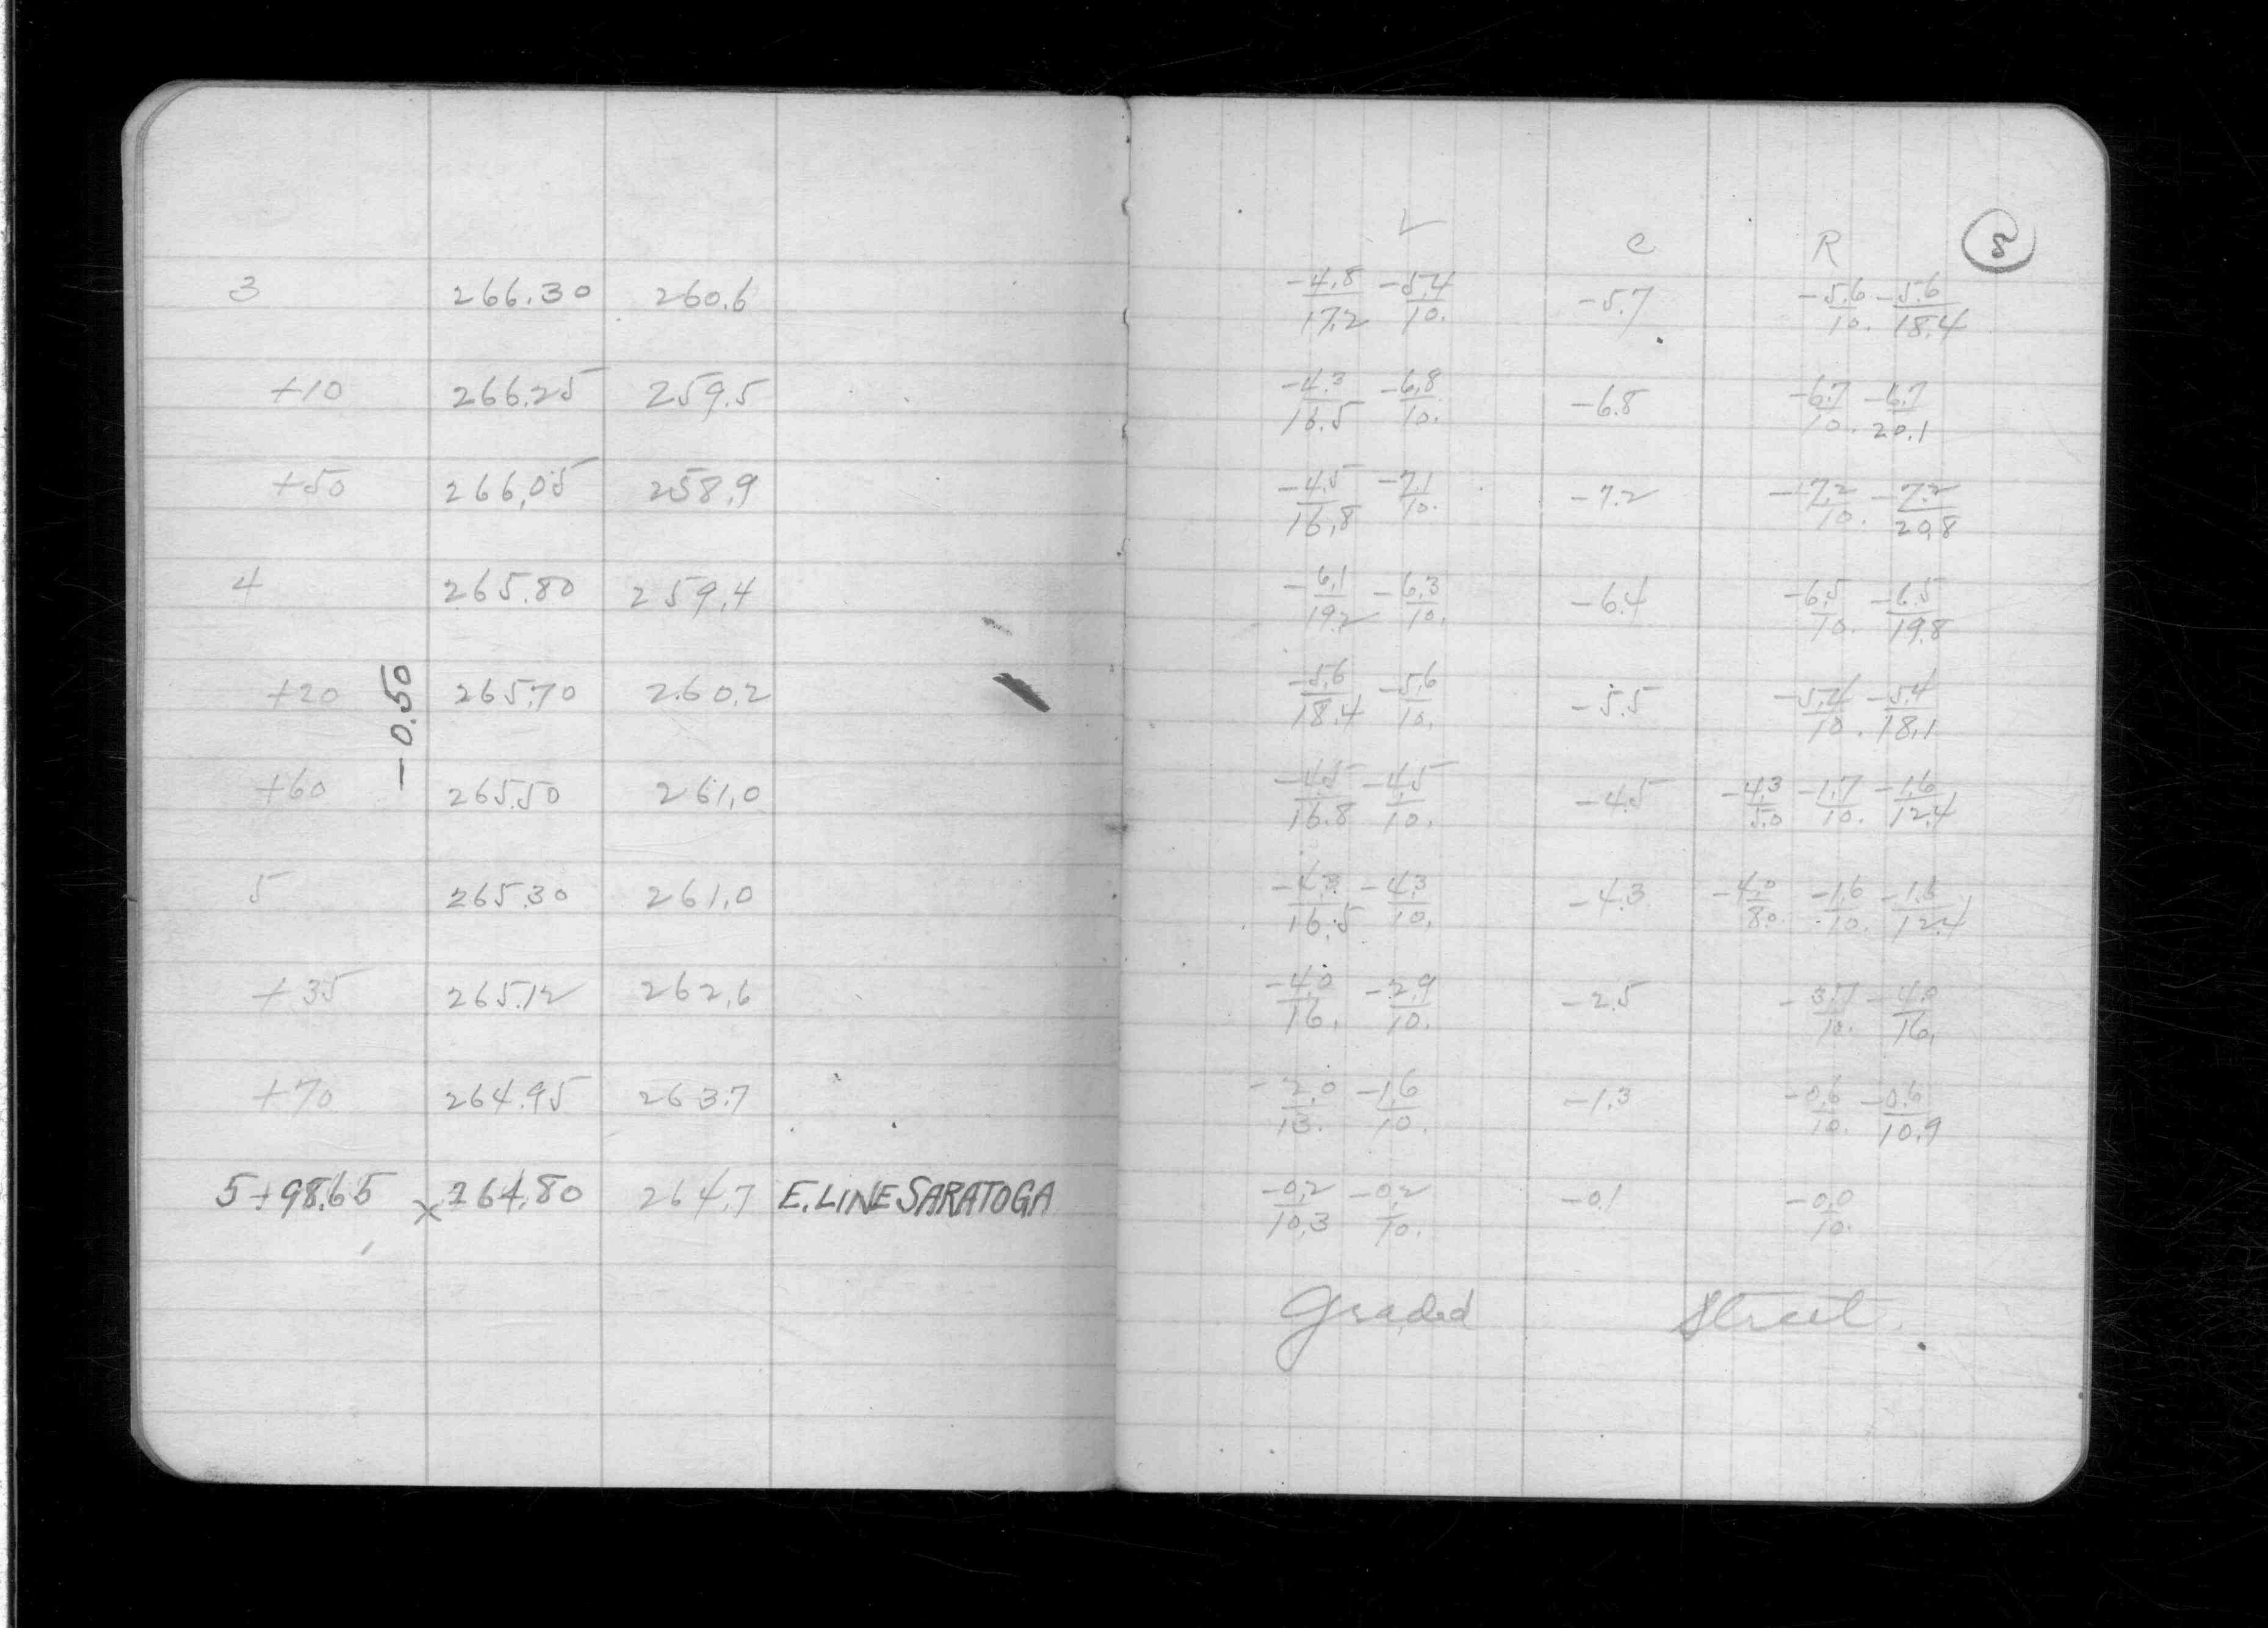 L C R 8
3 266.30 260.6 -4.8/17.2 -5.4/10. -5.7 -5.6/10. -5.6/18.4
+10 266.25 259.5 -4.3/16.5 -6.8/10. -6.8 -6.7/10. -6.7/20.1
+50 266.05 258.9 -4.5/16.8 -7.1/10. -7.2 -7.2/10. -7.2/20.8
4 265.80 259.4 -6.1/19.2 -6.3/10. -6.4 -6.5/10. -6.5/19.8
-0.50
+20 265.70 260.2 -5.6/18.4 -5.6/10. -5.5 -5.4/10. -5.4/18.1
+60 265.50 261.0 -4.5/16.8 -4.5/10. -4.5 -4.3/5.0 -1.7/10. -1.6/12.4
5 265.30 261.0 -4.3/16.5 -4.3/10. -4.3 -4.0/8.0 -1.6/10. -1.6/12.4
+35 265.12 262.6 -4.0/16. -2.9/10. -2.5 -3.7/10. -4.0/16.
+70 264.95 263.7 -2.0/13. -1.6/10. -1.3 -0.6/10. -0.6/10.9
5+98.65 x 264.80 264.7 E. LINE SARATOGA -0.2/10.3 -0.2/10. -0.1 -0.0/10.
Graded Street.